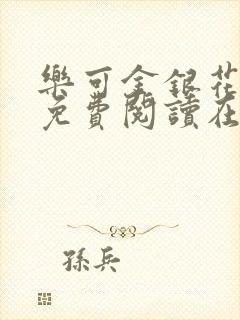 樂可金銀花
免費閱讀在
孫兵